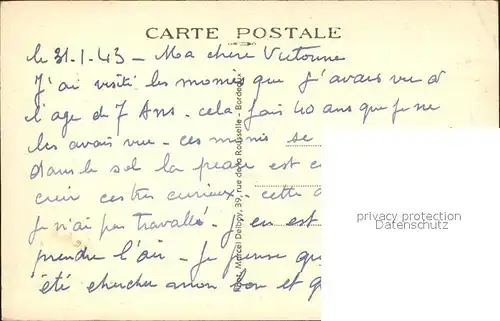 CARTE POSTALE
le 31-1-43 - Ma chère Victorine
J'ai visité les momies que j'avais vu à
l'age de 7 Ans. cela fais 40 ans que je ne
les avais vu - ces momies se
dans le sol la peau est c
cuir ces tres curieux, cette a
je n'ai pas travaillé. J'en est
prendre l'air - Je pense qu
été chercher mon bon et q
Phot. Marcel Delboy, 39, rue de la Rousselle - Bordeaux
privacy protection
copyright